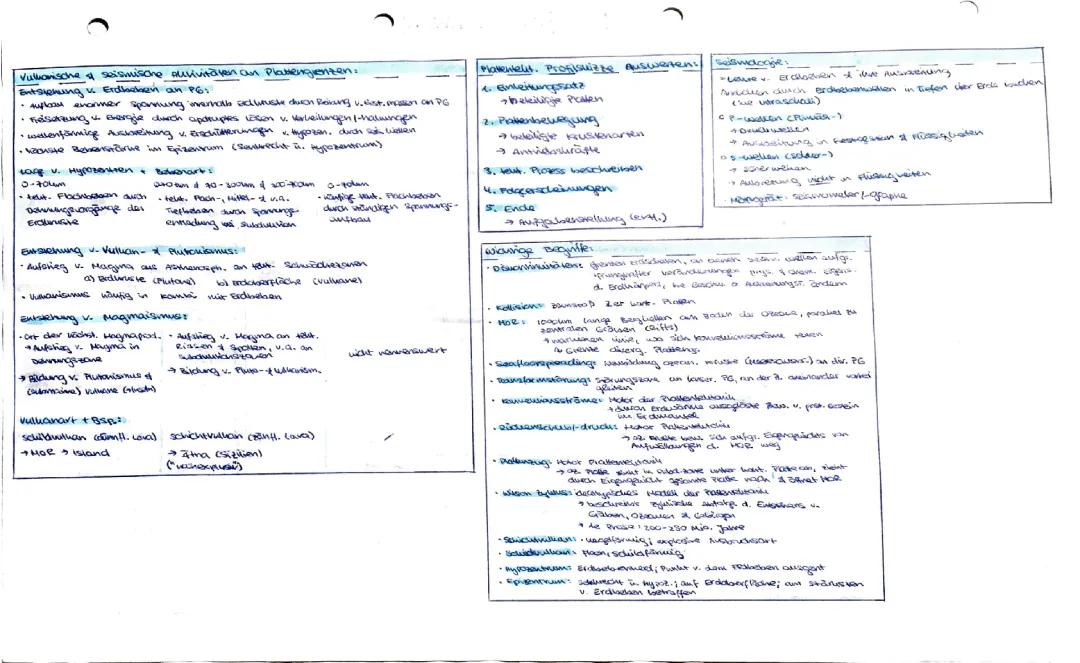 Vulkanische & seismische Aktivitäten an Plattengrenzen:
Entstehung v. Erdbeben an PG:
• Aufbau enormer Spannung innerhalb Erdkruste durch Reibung v. Gest.massen an PG
• Freisetzung v. Energie durch apruptes lösen v. Verkeilungen/-hakungen
• wellenförmige Ausbreitung v. Erschütterungen v. Hypozen. durch seis. Wellen
• höchste Bebenstärke im Epizentrum (Senkrecht ü. Hypozentrum)
Lage v. Hypozentren + Bebenart:
0-70km
• tekt. Flachbeben durch
Dehnungsvorgänge der
Erdkruste
0-70km & 70-300km & 300-700km
• tekt. Flach-, Mittel- & v.a.
Tiefbeben durch Spannungs-
entladung bei Subduktion
0-70km
• häufig tekt. Flachbeben
durch ständigen Spannungs-
aufbau
Entstehung v. Vulkan- & Plutonismus:
• Aufstieg v. Magma aus Asthenosph. an tekt. Schwächezonen
a) Erdkruste (Plutone) b) Erdoberfläche (Vulkane)
• Vulkanismus häufig in Kombi mit Erdbeben
Entstehung v. Magmatismus:
• Ort der höchst. Magmaprod.
→ Aufstieg v. Magma in
Dehnungszone
→ Bildung v. Plutonismus &
(submarine) Vulkane
• Aufstieg v. Magma an tekt.
Rissen & Spalten, v.a. an
Subduktionszonen
→ Bildung v. Pluto- & Vulkanism.
nicht nennenswert
Vulkanart + Bsp.:
Schildvulkan (dünnfl. Lava)
→ MOR → Island
Schichtvulkan (zähfl. Lava)
→ Ätna (Sizilien)
Plattentekt. Profilskizze Auswerten:
1. Einleitungssatz
→ beteiligte Platten
2. Plattenbewegung
→ beteiligte Krustenarten
→ Antriebskräfte
3. tekt. Prozess beschreiben
4. Folgeerscheinungen
5. Ende
→ Aufgabenstellung (evtl.)
Seismologie:
→ Lehre v. Erdbeben & ihre Ausbreitung
durch Erdbebenwellen in Tiefen der Erde
(wie Ultraschall)
P-Wellen (Primär-)
→ Druckwellen
→ Ausbreitung in Festgestein & Flüssigkeiten
S-Wellen (Sekder-)
→ Scherwellen
→ Ausbreitung nicht in Flüssigkeiten
• Messgerät: Seismometer/-graphe
Wichtige Begriffe:
• Diskontinuitäten: Grenzen Erdschalen, an denen seism. Wellen aufgr.
sprunghafter Veränderungen phys. & chem. Eigens.
d. Erdkörpers, ihre Geschw. & Ausbreitungsr. ändern
• Kollision: Zsmstoß 2er kont. Platten
• MOR: lange Bergketten am Boden der Ozeane, parallel zu
zentralen Gräben (Rifts)
→ markieren Linie, wo sich Konvektionsströme teilen
↳ Grenze diverg. Platteng.
• Seafloorspreading: Neubildung ozean. Kruste an div. PG
• Transformstörung: Störungszone an konser. PG, an der Pl. aneinander vorbei
gleiten
• Konvektionsströme: Motor der Plattentektonik
→ durch Erdwärme ausgelöste v. Gestein
im Erdmantel
• Rückenschub/-druck: Motor Plattentektonik
→ oz. Platte bew. sich aufgr. Eigengewichtes von
Aufwölbungen d. MOR weg
• Plattenzug: Motor Plattentektonik
→ oz. Platte sinkt in Subd.zone unter kont. Platte ab, zieht
durch Eigengewicht gesamte Platte nach & öffnet MOR
• Wilson Zyklus: idealtypisches Modell der Plattentektonik
→ beschreibt zyklische Abfolge d. Entstehens v.
Gräben, Ozeanen & Gebirgen
→ Phase: 200-250 Mio. Jahre
• Schichtvulkan: kegelförmig; explosive Ausbruchsart
• Schildvulkan: flach, schildförmig
• Hypozentrum: Erdbebenherd; Punkt v. dem Erdbeben ausgeht
• Epizentrum: senkrecht ü. Hypoz.; auf Erdoberfläche; am stärksten
v. Erdbeben betroffen